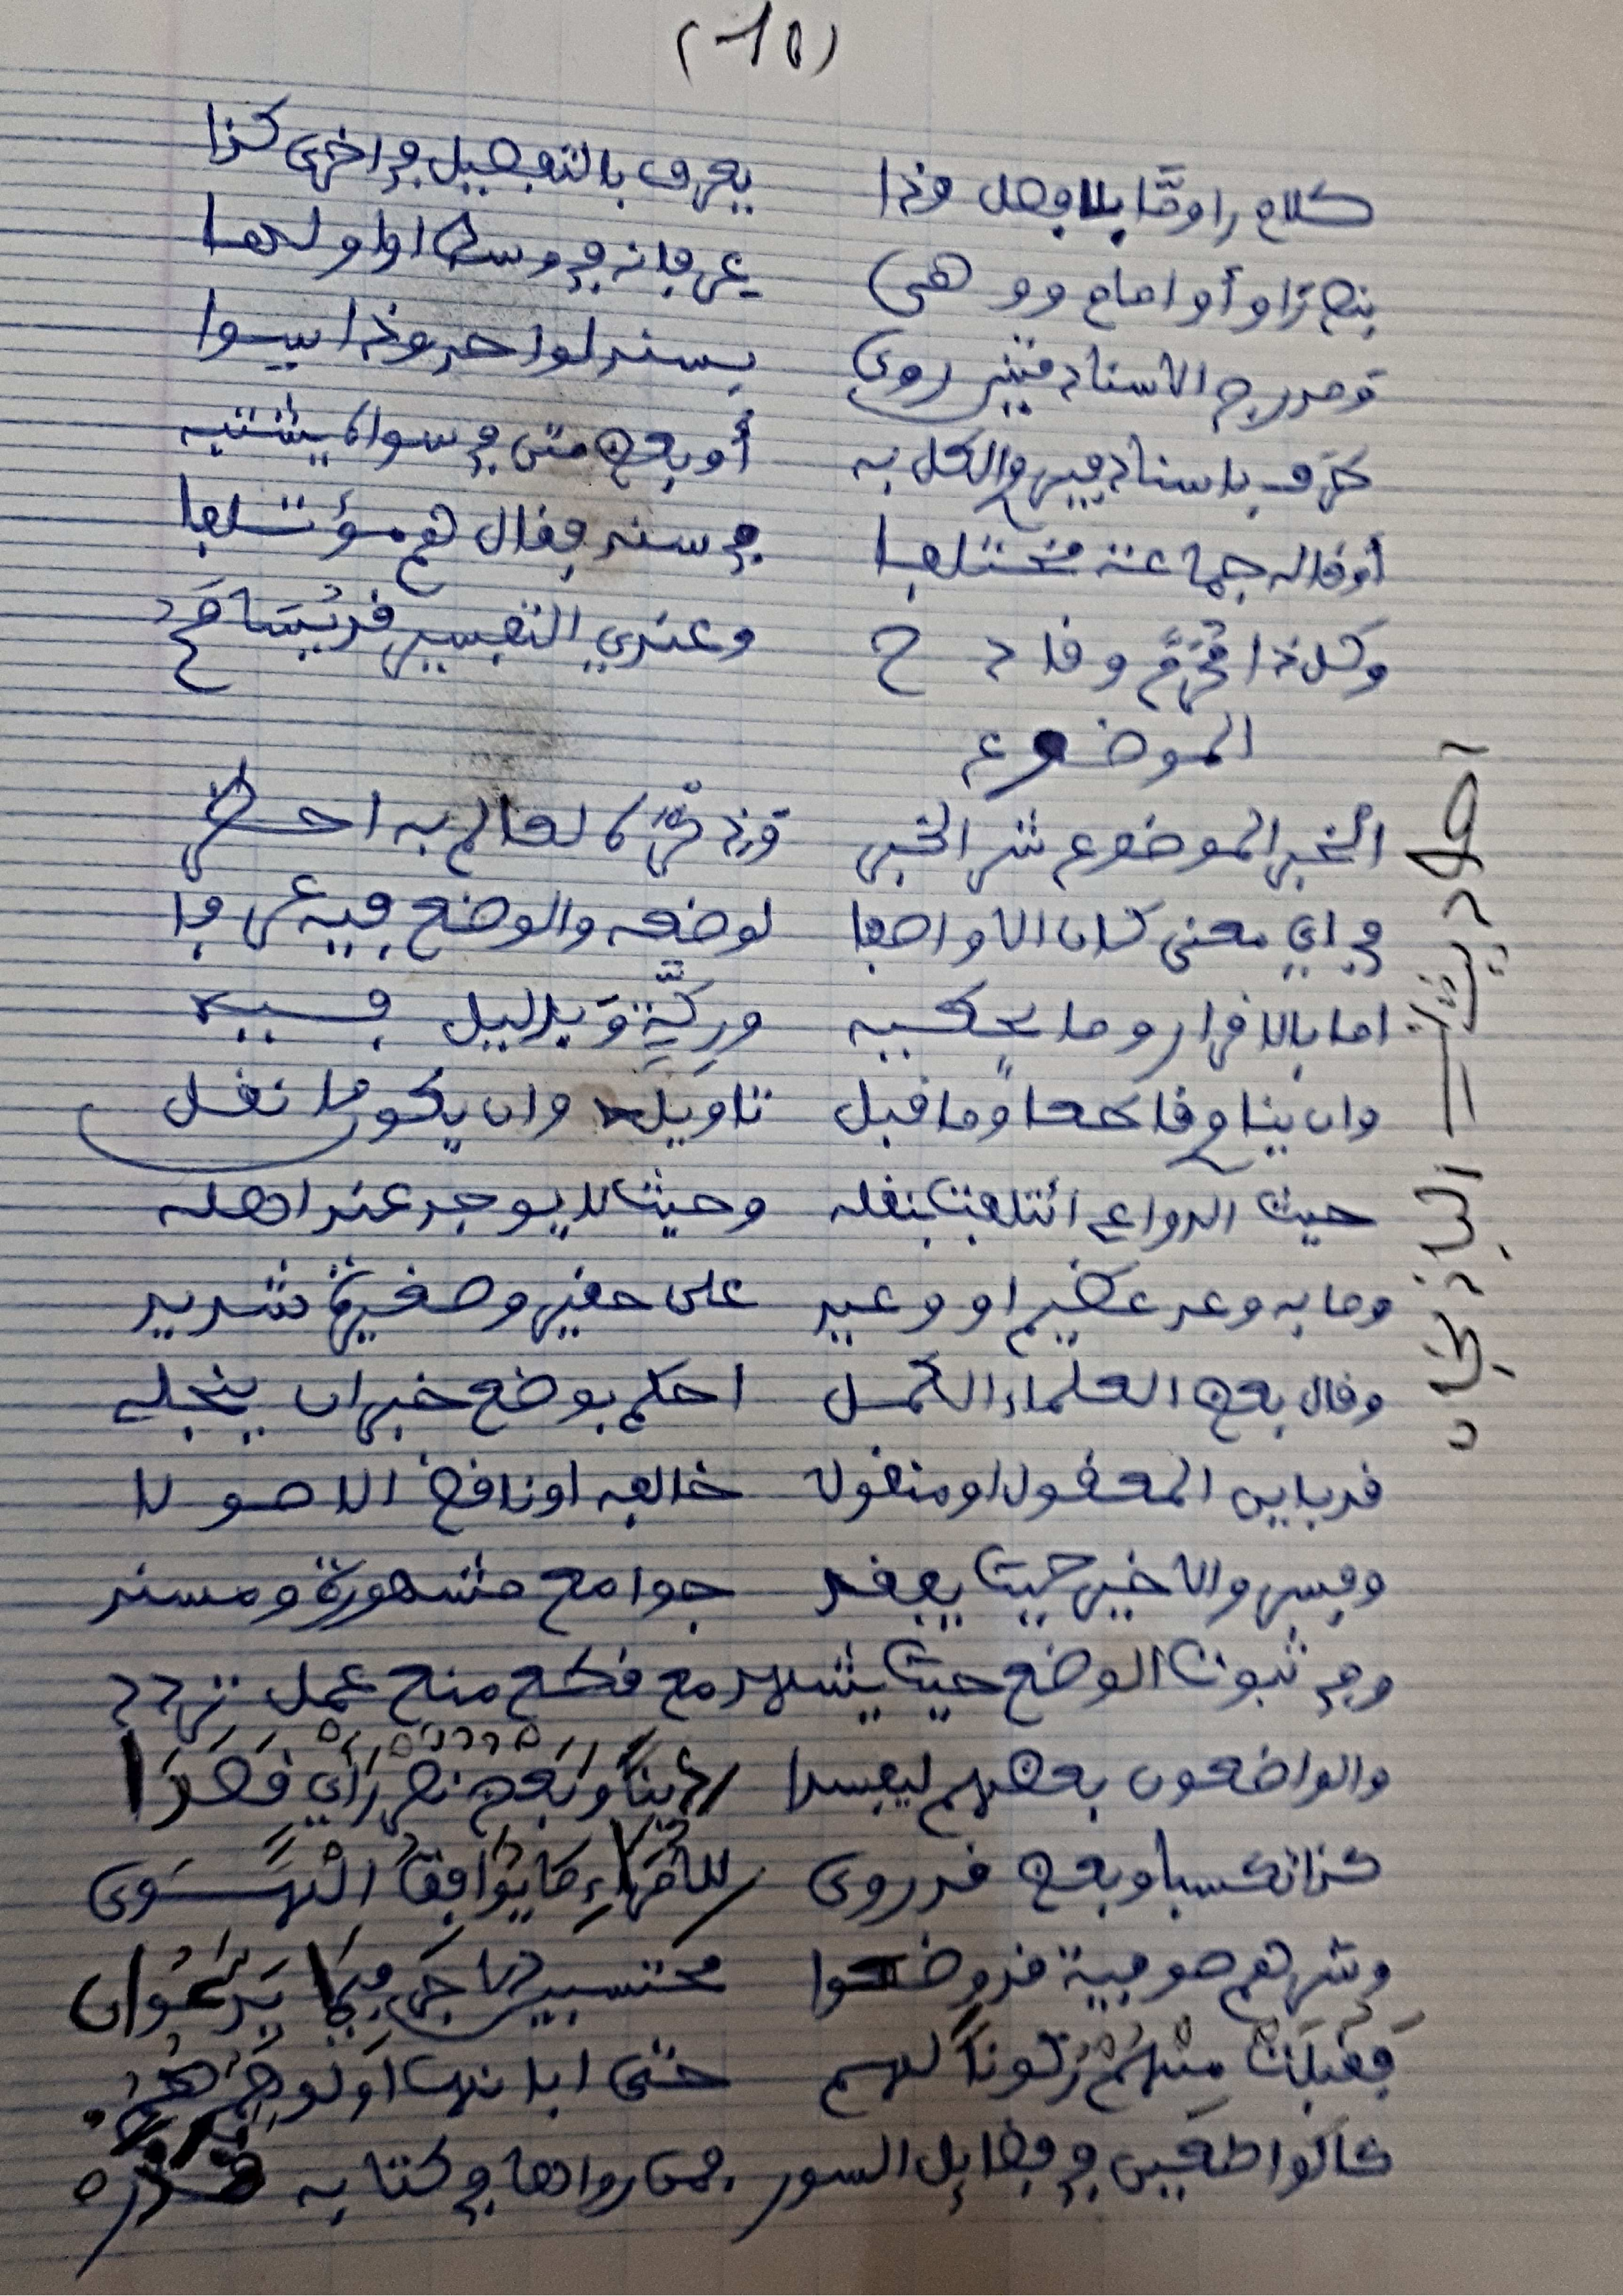 (10)
كلام راو ما بلا فصل وذا يعرف بالتفصيل في اخرى كذا
بنص راو أو امام ووهى عرفانه في وسط او اولها
ومدرج الاسناد متنين روى بسند لواحد وذا سوا
طرف باسناد فيروي الكل به أو بعض متن في سواه يشتبه
أو قاله جماعة مختلفا في سند فقال هم مؤتلفا
وكل ذا محرم وقادح وعندي التفسير قد يسامح
الموضوع
الخبر الموضوع شر الخبر وذكره لعالم به احظر
في اي معنى كان الا واصفا لوضعه والوضع فيه عرفا
اما بالاقرار وما يحكيه وركة وبدليل فيه
وان يناو قاطعا وما قبل تاويله وان يكون ما نقل
حيث الدواعي ائتلفت بنقله وحيث لا يوجد عند اهله
وما به وعد عظيم او وعيد على حقير وصغيرة شديد
وقال بعض العلماء الكمل احكم بوضع خبر ان ينجلي
قد باين المعقول او منقولا خالفه او ناقض الاصولا
وفسروا الاخير حيث يفقد جوامع مشهورة ومسند
وفي ثبوت الوضع حيث يشهد مع قطع منع عمل تردد
والواضعون بعضهم ليفسدا دينا وبعض نصر رأي قصدا
كذا تكسبا وبعض قد روى للأمراء ما يوافق الهوى
وشرهم صوفية قد وضعوا محتسبين الاجر فيما يدعوا
فقبلت منهم ركونا لهم حتى ابانها اولو هم هم
كالواضعين في فضائل السور فمن رواها في كتابه فذر